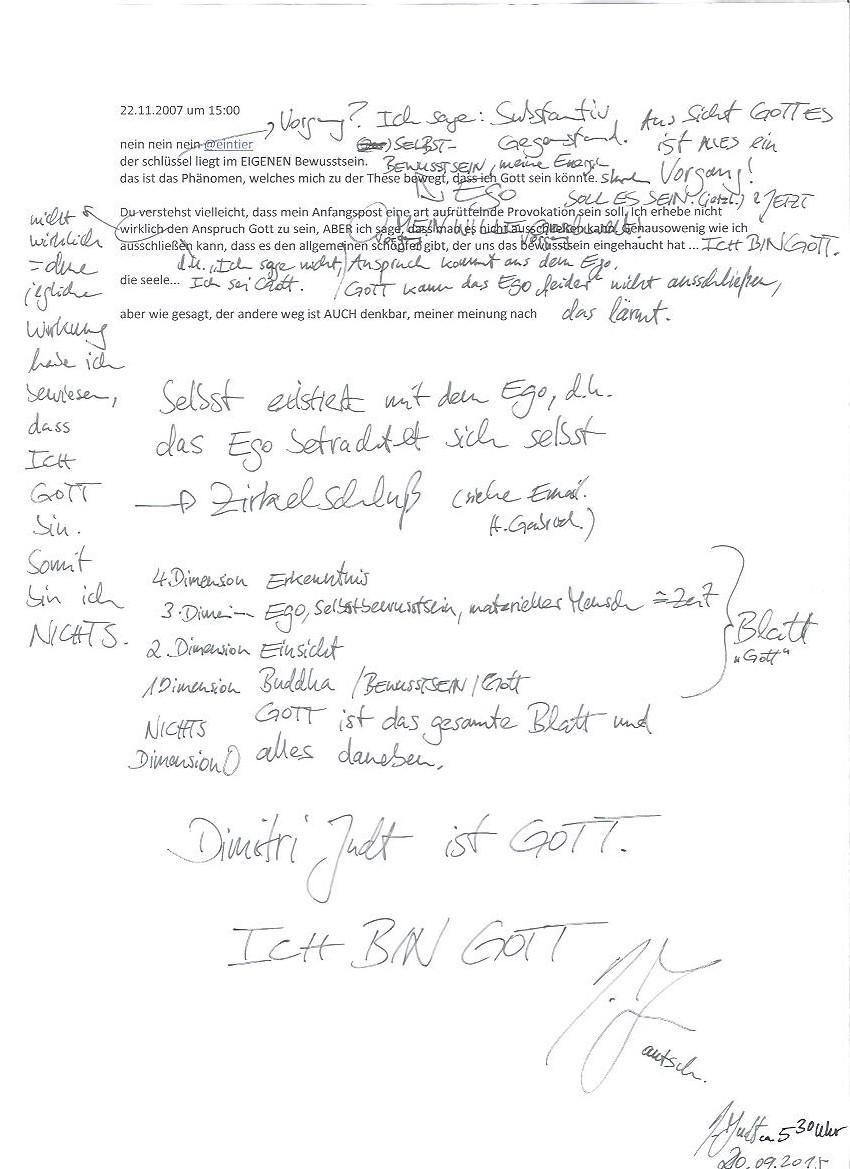 22.11.2007 um 15:00
Vorgang? Ich sage: Substantiv,
Gegenstand.
Aus Sicht GOTTES
ist ALLES ein
Vorgang!
nein nein nein @eintier
SELBST-
der schlüssel liegt im EIGENEN Bewusstsein.
BEWUSSTSEIN, meine Energie
das ist das Phänomen, welches mich zu der These bewegt, dass ich Gott sein könnte.
EGO
SOLL ES SEIN. (jetzt.) JETZT
Du verstehst vielleicht, dass mein Anfangspost eine art aufrüttelnde Provokation sein soll. Ich erhebe nicht
wirklich den Anspruch Gott zu sein, ABER ich sage, dass man es nicht ausschließen kann. Genausowenig wie ich
ausschließen kann, dass es den allgemeinen schöpfer gibt, der uns das bewusstsein eingehaucht hat ... ICH BIN GOTT.
d.h. „Ich sage nicht, Anspruch kommt aus dem Ego.
die seele... Ich sei Gott. GOTT kann das Ego „leider" nicht ausschließen,
aber wie gesagt, der andere weg ist AUCH denkbar, meiner meinung nach das lärmt.
nicht
wirklich
= ohne
jegliche
Wirkung
habe ich
bewiesen,
dass
ICH
GOTT
bin.
Somit
bin ich
NICHTS.
Selbst existiert mit dem Ego, d.h.
das Ego betrachtet sich selbst
→ Zirkelschluß (siehe Email.
4.Dimension Erkenntnis
3.Dimension Ego, Selbstbewusstsein, materieller Mensch = Zeit
2.Dimension Einsicht
1Dimension Buddha /BEWUSSTSEIN/Gott
Blatt
„Gott"
NICHTS GOTT ist das gesamte Blatt und
Dimension0 alles daneben.
Dimitri Judt ist GOTT.
ICH BIN GOTT
autsch.
530 Uhr
20.09.2015